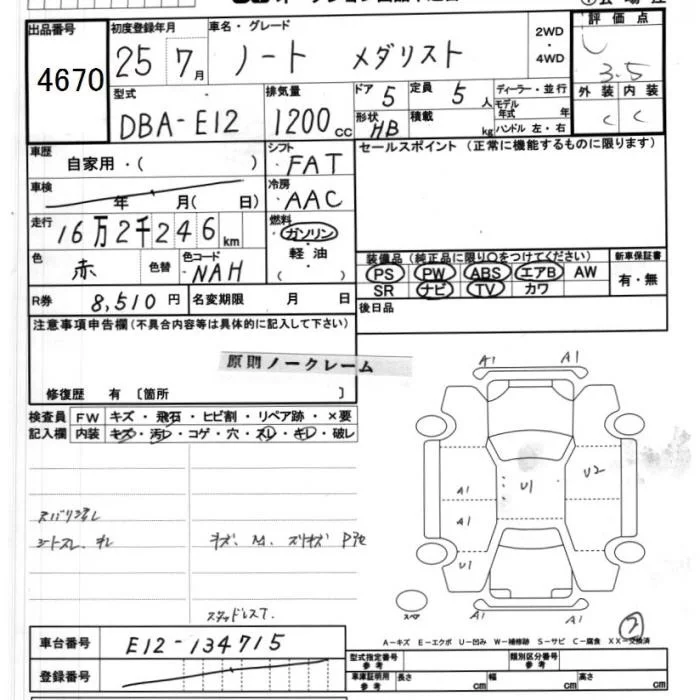 出品番号 4670
初度登録年月 25 7月
車名・グレード ノート メダリスト
2WD・4WD
評価点 3.5
外装 内装
C C
型式 DBA-E12
排気量 1200cc
ドア 5
定員 5人
形状 HB
積載 kg
ディーラー・並行
モデル年式 年
ハンドル 左・右
車歴 自家用・( )
シフト ・FAT
セールスポイント (正常に機能するものに限ります)
車検 年 月( 日)
冷房 ・AAC
走行 16万2千246km
燃料 ・ガソリン 軽油 ・( )
色 赤 色替
色コード ・NAH
装備品 (純正品に限り○をつけてください)
新車保証書
PS PW ABS エアB AW
有・無
SR ナビ TV カワ
R券 8,510円
名変期限 月 日
後日品
注意事項申告欄(不具合内容等は具体的に記入して下さい)
原則ノークレーム
修復歴 有 〔箇所 〕
検査員記入欄
FW キズ・飛石・ヒビ割・リペア跡・×要
内装 キズ・汚レ・コゲ・穴・スレ・キレ・破レ
シートスレ、キレ
スタッドレスT.
A1 A1
A1 A1 U1 U1 U2
A1 A1
スペア
2
A-キズ E-エクボ U-凹み W-補修跡 S-サビ C-腐食 XX-交換済
車台番号 E12-134715
登録番号
型式指定番号 参考
類別区分番号 参考
車庫証明用 参考 長さ cm 幅 cm 高さ cm